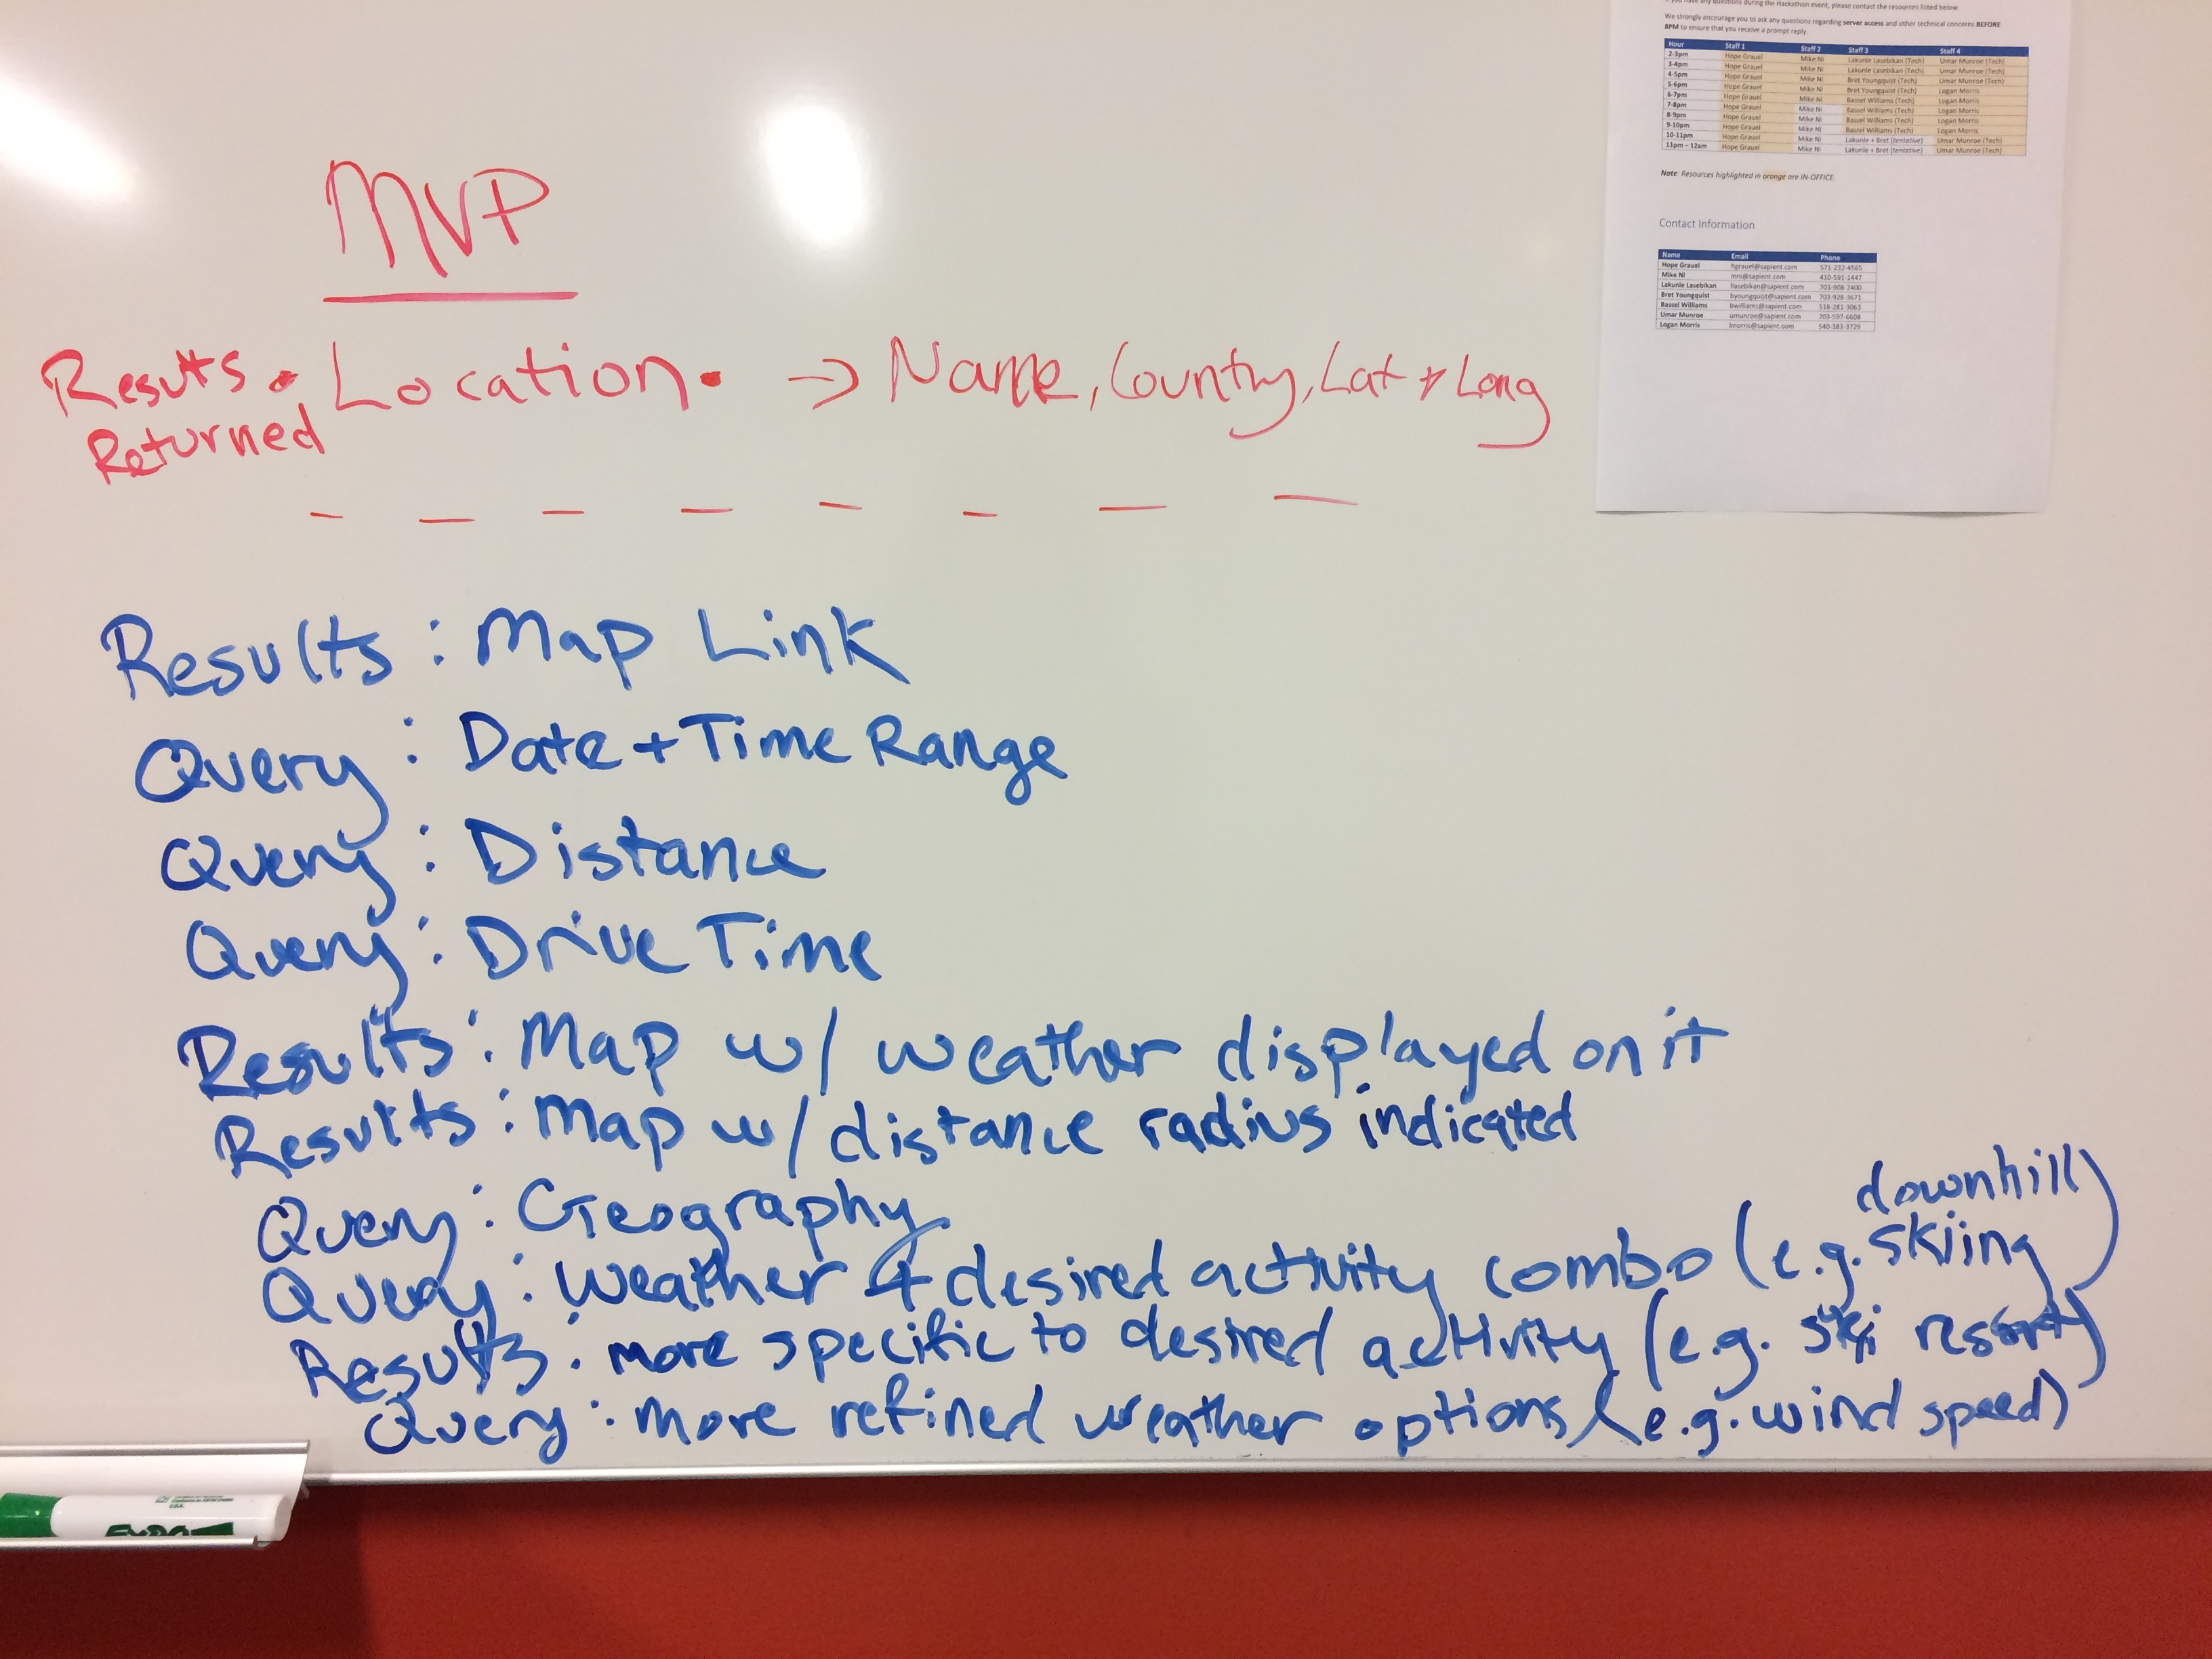 We strongly encourage you to ask any questions regarding server access and other technical concerns BEFORE
8PM to ensure that you receive a prompt reply
Hour Staff 1 Staff 2 Staff 3 Staff 4
2-3pm Hope Grauel Mike Ni Lakunle Lasebikan (Tech) Umar Munroe (Tech)
3-4pm Hope Grauel Mike Ni Lakunle Lasebikan (Tech) Umar Munroe (Tech)
4-5pm Hope Grauel Mike Ni Bret Youngquist (Tech) Umar Munroe (Tech)
5-6pm Hope Grauel Mike Ni Bret Youngquist (Tech) Logan Morris
6-7pm Hope Grauel Mike Ni Bassel Williams (Tech) Logan Morris
7-8pm Hope Grauel Mike Ni Bassel Williams (Tech) Logan Morris
8-9pm Hope Grauel Mike Ni Bassel Williams (Tech) Logan Morris
9-10pm Hope Grauel Mike Ni Bassel Williams (Tech) Logan Morris
10-11pm Hope Grauel Mike Ni Lakunle + Bret (tentative) Umar Munroe (Tech)
11pm – 12am Hope Grauel Mike Ni Lakunle + Bret (tentative) Umar Munroe (Tech)
Note: Resources highlighted in orange are IN-OFFICE
Contact Information
Name Email Phone
Hope Grauel hgrauel@sapient.com 571-232-4565
Mike Ni mni@sapient.com 410-591-1447
Lakunle Lasebikan llasebikan@sapient.com 703-908-2400
Bret Youngquist byoungquist@sapient.com 703-928-3671
Bassel Williams bwilliams@sapient.com 518-281-3063
Umar Munroe umunroe@sapient.com 703-597-6608
Logan Morris lmorris@sapient.com 540-383-3729
MVP
Results • Location. → Name, County, Lat + Long
Returned
Results : Map Link
Query : Date + Time Range
Query : Distance
Query : Drive Time
Results : Map w/ weather displayed on it
Results : Map w/ distance radius indicated
Query : Geography
Query : Weather + desired activity combo (e.g. downhill skiing)
Results : more specific to desired activity (e.g. ski resort)
Query : more refined weather options (e.g. wind speed)
EXPO